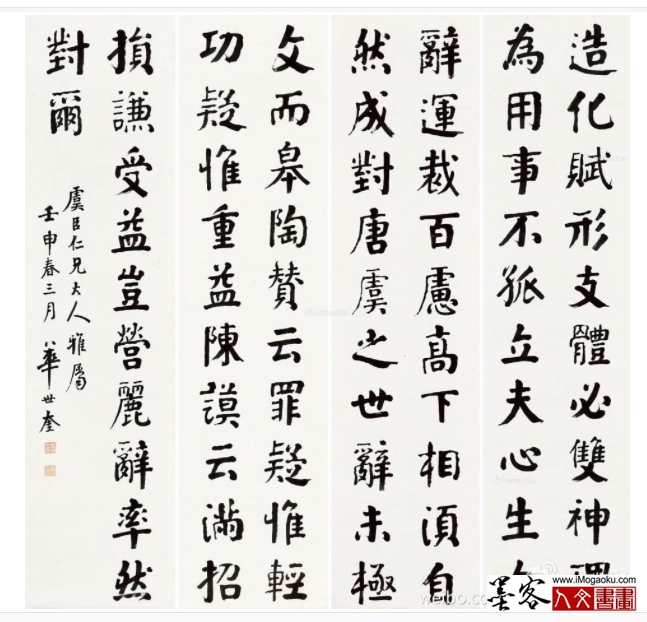 造化賦形支體必雙神理
為用事不孤立夫心生
辭運裁百慮高下相湏自
然成對唐虞之世辭未極
文而皋陶贊云罪疑惟輕
功疑惟重益陳謨云滿招
損謙受益豈營麗辭率然
對爾
虞臣仁兄大人雅屬
壬申春三月 華世奎
墨客
www.iMogaoku.com
人文書畫